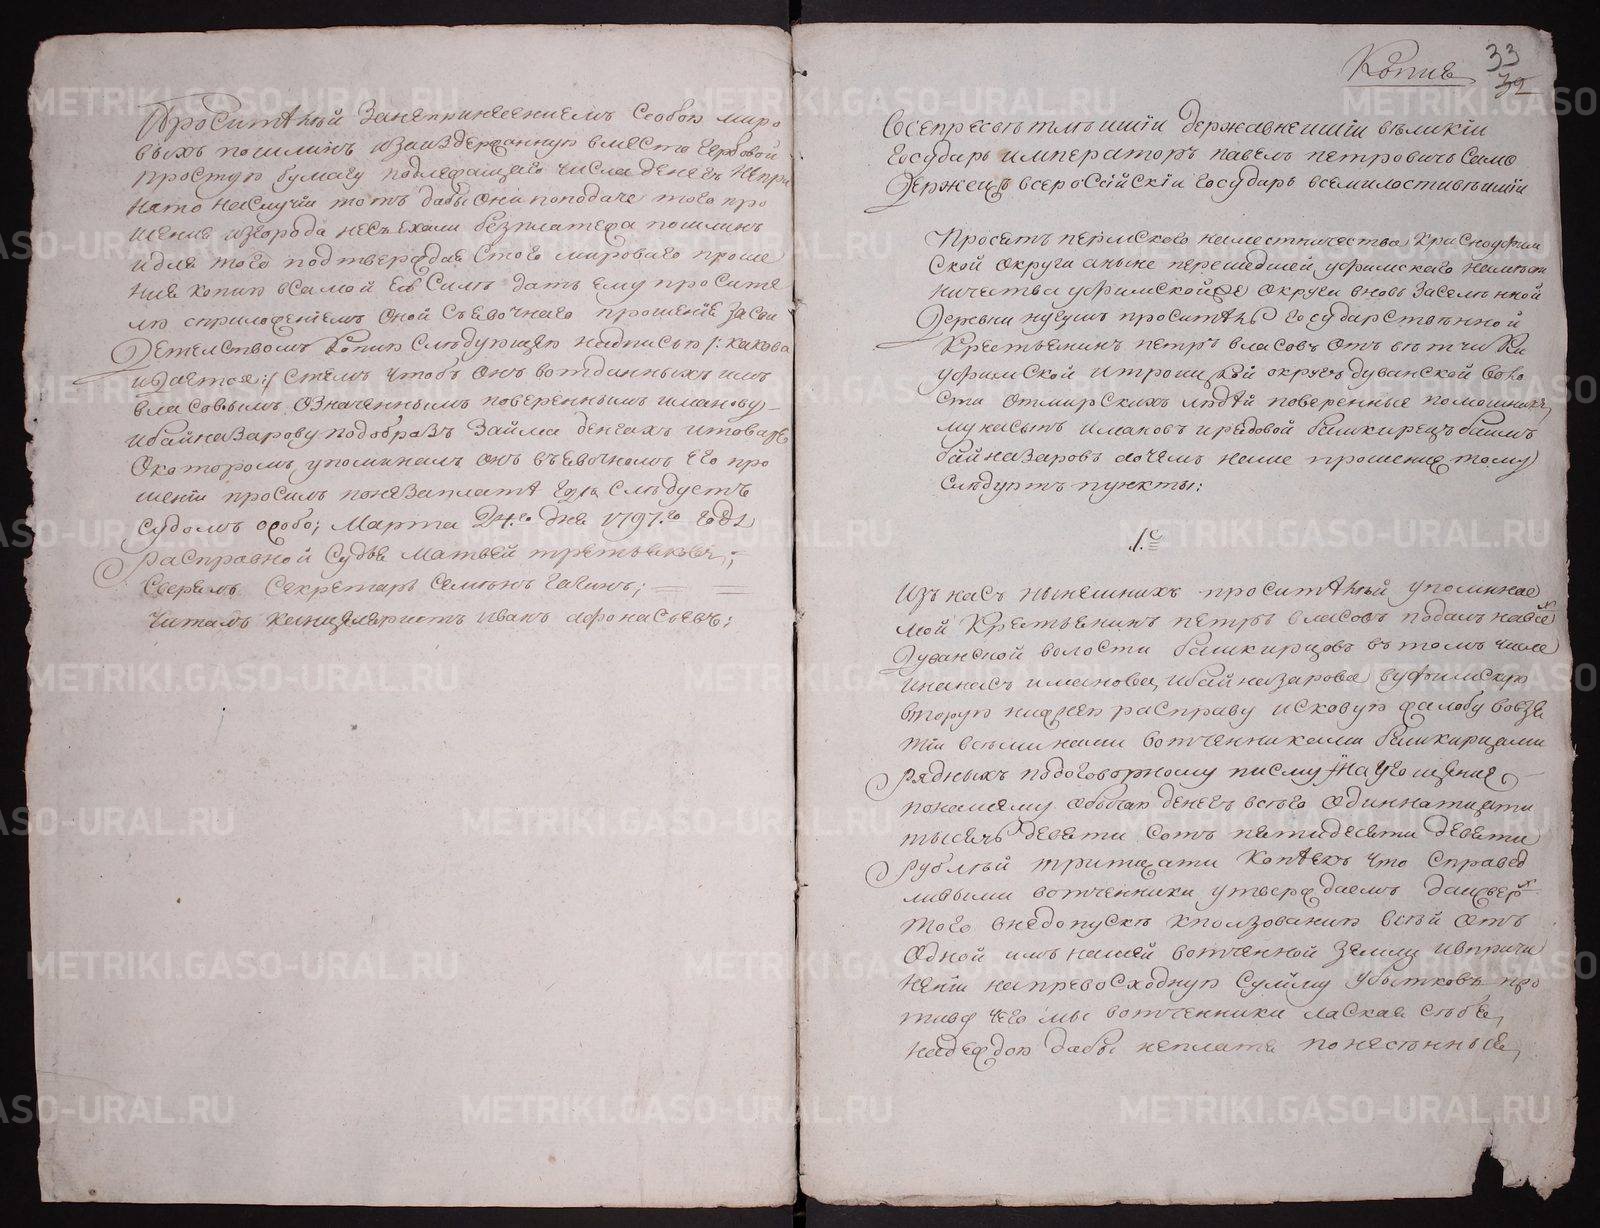 Просителъй занепринесениемъ Собою миро
выхъ пошлинъ изаиздержанную вместо гербовой
простую бумагу подлежащаго числа денегъ непри
нято наслучай тотъ дабы они поподаче того про
шения изгорода несъехали безплатежа пошлинъ
идля того подтверждая стого мироваго проше
ния копию всамой ея силе дать ему просите
лю сприложениемъ оной съявочнаго прошения засви
детелствомъ копию следующею надписью /: какова
идается :/ стемъ чтобъ онъ вотданныхъ имъ
власовымъ означеннымъ повереннымъ иманову
ибайназарову подобразъ займа денгахъ итоваре
окоторомъ упоминалъ онъ въявочномъ его про
шении просилъ понезаплате где следуетъ
судомъ особо; Марта 24.го дня 1797.го года
расправной судья матвей третьяковъ;
Сверялъ Секретарь Семенъ гагинъ;
Читалъ канцеляристъ иванъ афонасьевъ;
Копия
33
32
Всепресветлейший державнейший великий
государь императоръ павелъ петровичь само
держецъ всероссийский государь всемилостивейший
Просятъ пермского наместничества красноуфим
ской округи аныне перешедшей уфимскаго намест
ничества уфимской же округи вновь заселенной
деревни
государственной
крестьянинъ петръ власовъ отъ вотчин
уфимской итроицкой округъ дуванской воло
сти отмирскихъ людей поверенные помошникъ
мукасыпъ имановъ ирядовой башкирецъ баимъ
байназаровъ аочемъ наше прошение тому
следуютъ пункты:
1.е
Изъ насъ нынешнихъ просителъй упоминае
мой крестьянинъ петръ власовъ подалъ на
дуванской волости башкирцовъ втомъ числе
инанасъ иманова, ибайназарова вуфимскую
вторую нижнею расправу исковую жалобу вовзя
тии всеми нами вотчинниками башкирцами
рядныхъ подоговорному писму на угощения
понашему обычаю денегъ всего одиннатцати
тысячь девяти сотъ пятидесяти девяти
рублей тритцати копеекъ что справед
ливыми вотчинники утверждаемъ
того внедопуске кползованию всей
одной имъ нашей вотчинной земли ивпричи
нении напревосходную сумму убытковъ про
тивъ чего мы вотчинники лаская себя
надеждою дабы неплатя